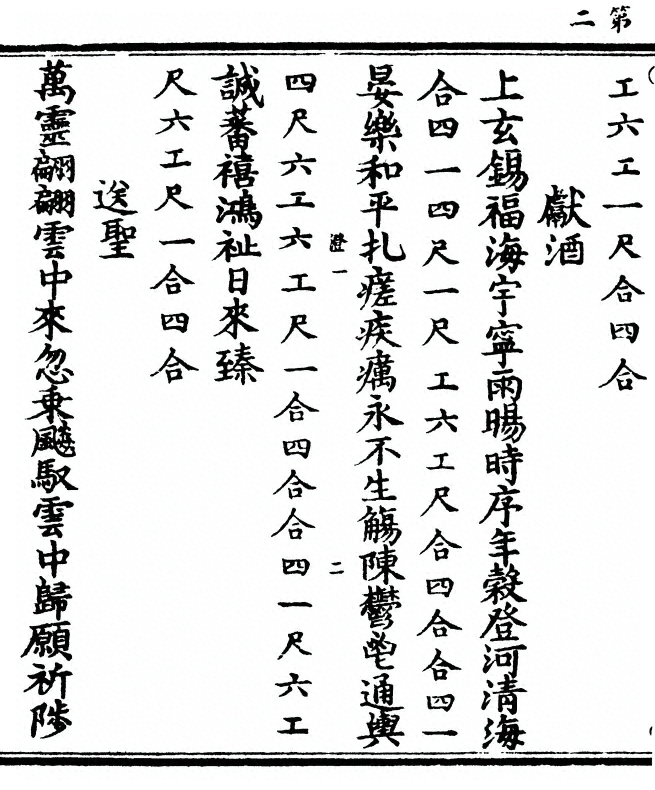 第二
工六工一尺合四合
獻酒
上玄錫福海宇寧雨暘時序年穀登河清海
合四一四尺一尺工六工尺合四合合四一
晏樂和平扎瘥疾癘永不生觴陳鬱鬯通輿
澄一
二
四尺六工六工尺一合四合合四一尺六工
誠蕃禧鴻祉日來臻
尺六工尺一合四合
送聖
萬靈翩翩雲中來忽乘飈馭雲中歸願祈陟